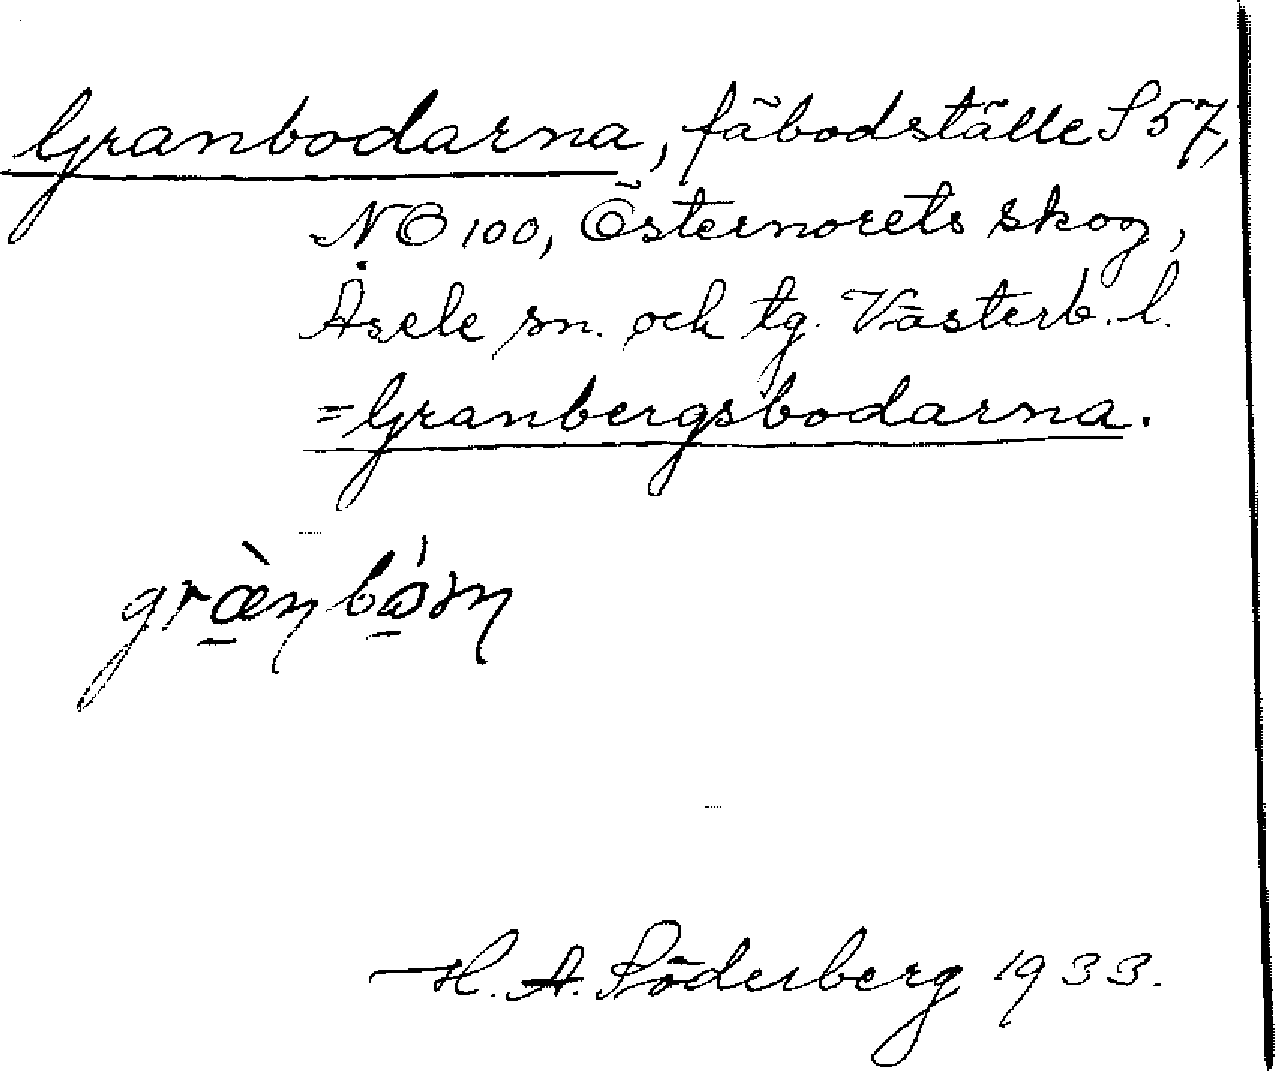 Granbodarna, fäbodställe S 57,
NO 100, Östernorets skog,
Åsele sn. och tg. Västerb. l.
= Granbergsbodarna.
H. A. Söderberg 1933.